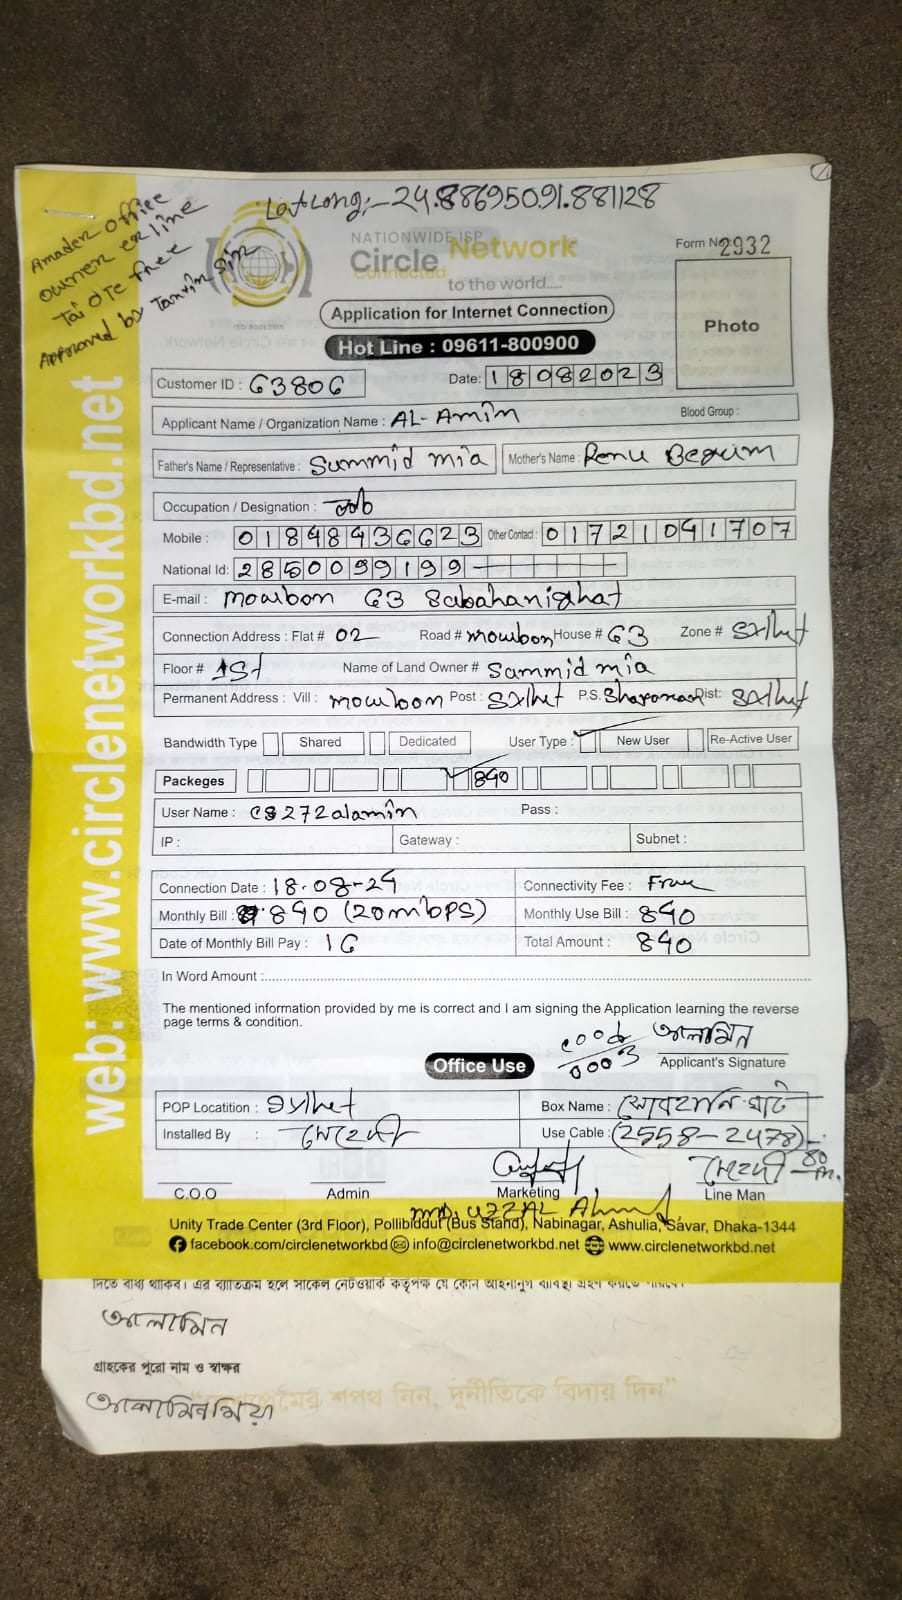 LatLong:- 24.886950,91.881128
Amader Office
owner er line
Tai OTC free
Approved by Tanvim Sir
NATIONWIDE ISP
Circle Network
Connected
to the world....
Form No: 2932
Photo
Application for Internet Connection
Hot Line : 09611-800900
Customer ID : 63806
Date: 18082023
Applicant Name / Organization Name : AL-Amin
Blood Group :
Father's Name / Representative : Summid mia
Mother's Name : Renu Begum
Occupation / Designation : Job
Mobile : 01848436623 Other Contact : 01721041707
National Id: 2850099199
E-mail : mowbon 63 Sabahanighat
Connection Address : Flat # 02 Road # mowbon House # 63 Zone # Sylhet
Floor # 1st Name of Land Owner # Sammid mia
Permanent Address : Vill : mowbon Post : Sylhet P.S. Dist: Sylhet
Bandwidth Type Shared Dedicated User Type : New User Re-Active User
Packeges 840
User Name : cs272alamin Pass :
IP : Gateway : Subnet :
Connection Date : 18-08-24 Connectivity Fee : Free
Monthly Bill : 840 (20mbps) Monthly Use Bill : 840
Date of Monthly Bill Pay : 16 Total Amount : 840
In Word Amount :
The mentioned information provided by me is correct and I am signing the Application learning the reverse
page terms & condition.
আলামিন
0003
Applicant's Signature
Office Use
POP Locatition : Sylhet Box Name : সোবহানি ঘাট
Installed By : মেহেদী Use Cable : (2558-2478)-
80 m.
মেহেদী
C.O.O Admin Marketing Line Man
MD. UZZAL Ahmed
Unity Trade Center (3rd Floor), Pollibiddut (Bus Stand), Nabinagar, Ashulia, Savar, Dhaka-1344
facebook.com/circlenetworkbd info@circlenetworkbd.net www.circlenetworkbd.net
web: www.circlenetworkbd.net
দিতে বাধ্য থাকিব। এর ব্যতিক্রম হলে সার্কেল নেটওয়ার্ক কর্তৃপক্ষ যে কোন আইনানুগ ব্যবস্থা গ্রহণ করতে পারবে।
আলামিন
গ্রাহকের পুরো নাম ও স্বাক্ষর
শপথ নিন, দুর্নীতিকে বিদায় দিন"
আলামিন মিয়া